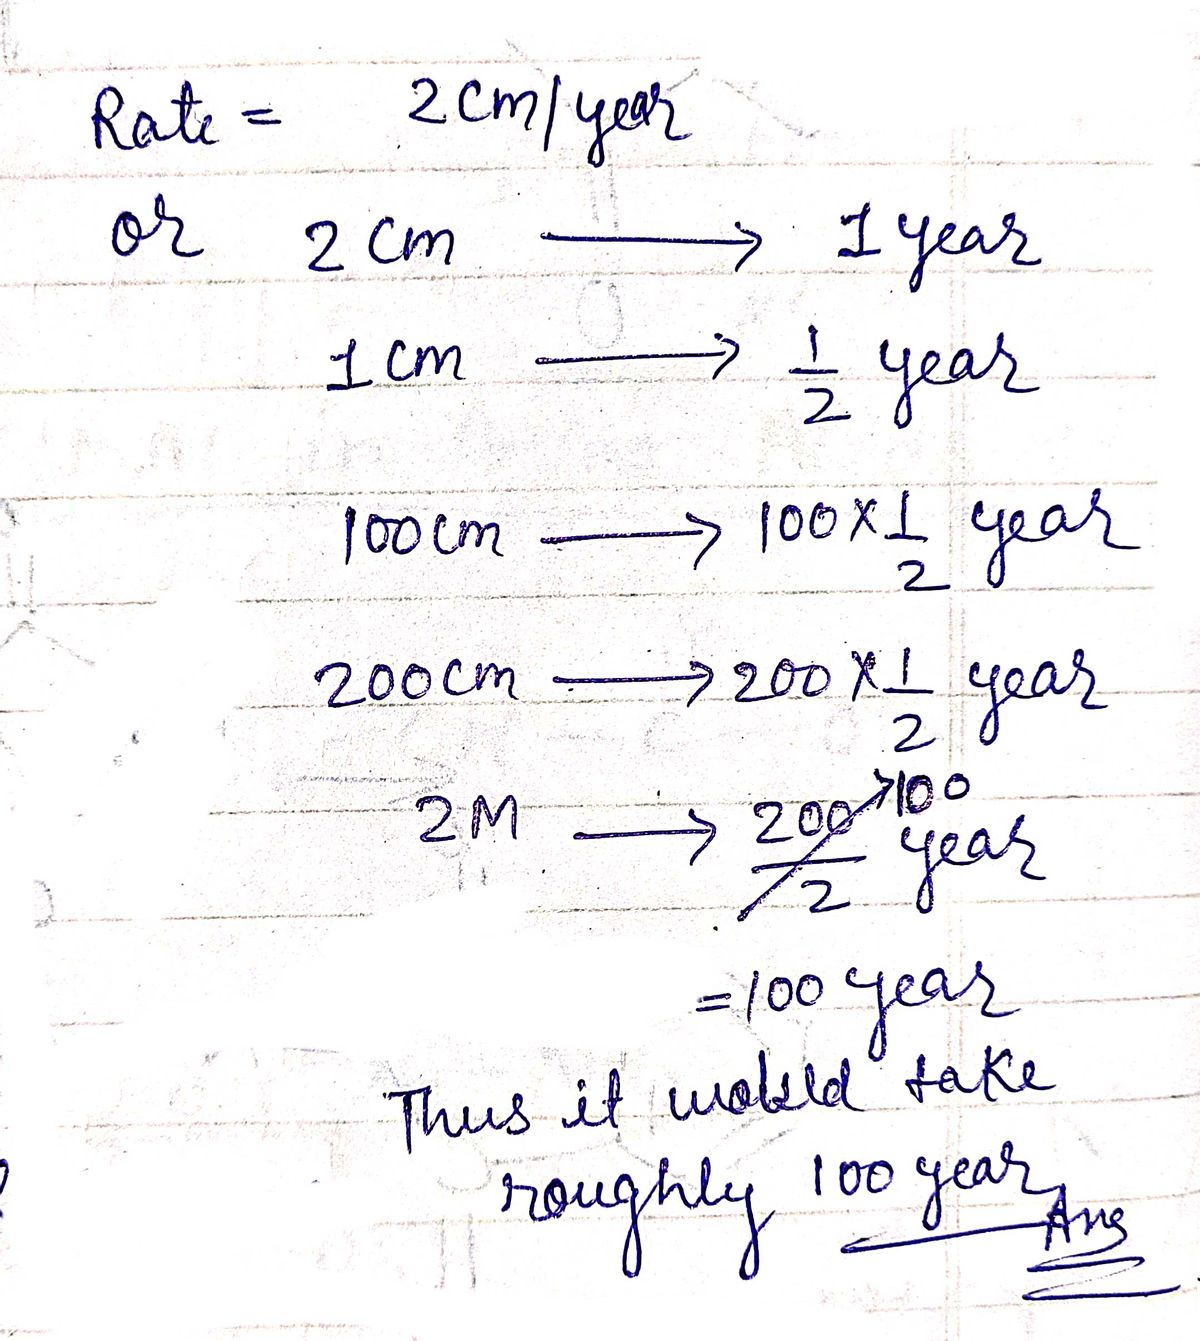 Rate = 2 cm/year
or 2 cm → 1 year
1 cm → 1/2 year
100 cm → 100 × 1/2 year
200 cm → 200 × 1/2 year
2 M → 200/2 → 100 year
= 100 year
Thus it would take
roughly 100 year
Ans